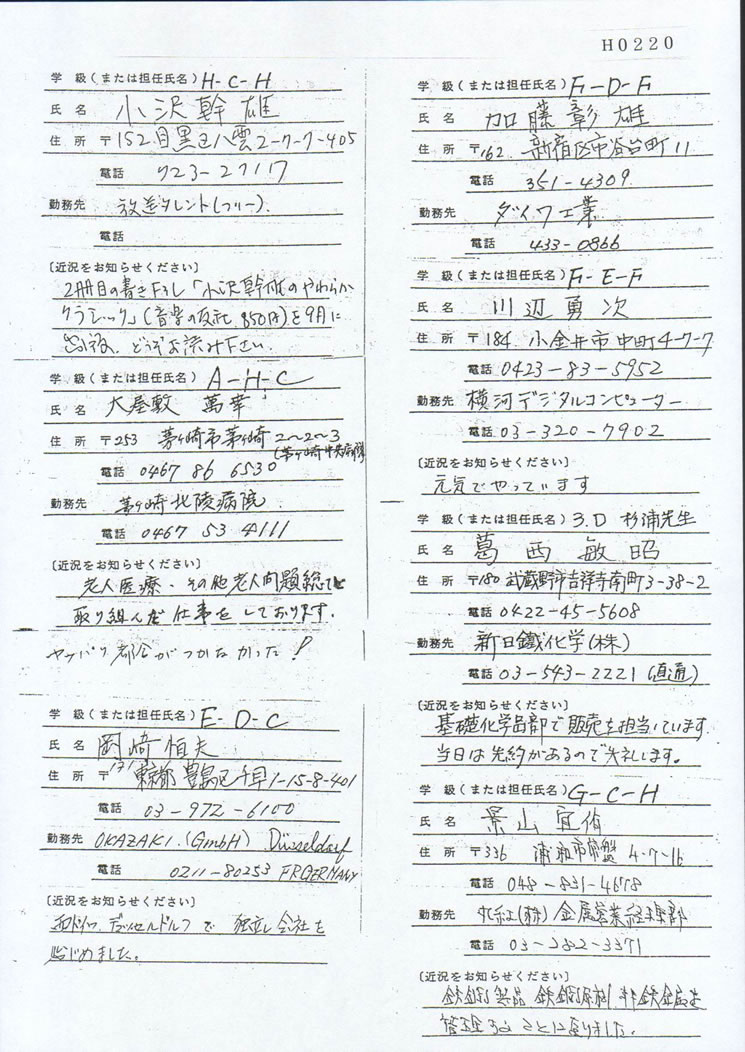 H0220
学 級(または担任氏名) H-C-H
氏 名 小沢幹雄
住 所 〒152 目黒区八雲2-7-7-405
電話 723-27117
勤務先 放送タレント(フリー).
電話
〔近況をお知らせください〕
2冊目の書き下し「小沢幹雄のやわらか
クラシック」(音楽の友社 850円)を9月に
出版、どうぞお読み下さい.
学 級(または担任氏名) A-H-C
氏 名 大屋敷 萬幸
住 所 〒253 茅ヶ崎市茅ヶ崎 2~2~3
(茅ヶ崎中央病院)
電話 0467 86 6530
勤務先 茅ヶ崎北陵病院.
電話 0467 53 4111
〔近況をお知らせください〕
老人医療、その他老人問題総てに
取り組んだ仕事をしております.
ヤッパリ都合がつかなかった!
学 級(または担任氏名) E-D-C
氏 名 岡崎恒夫
住 所 〒171 東京都豊島区千早1-15-8-401
電話 03-972-6100
勤務先 OKAZAKI.(GmbH) Düsseldorf
電話 0211-80253 FRGERMANY
〔近況をお知らせください〕
西ドイツ、デュッセルドルフで 独立し会社を
始じめました.
学 級(または担任氏名) F-D-F
氏 名 加藤彰雄
住 所 〒162. 新宿区市谷台町11
電話 351-4309.
勤務先 ダイワ工業
電話 433-0866
学 級(または担任氏名) F-E-F
氏 名 川辺勇次
住 所 〒184. 小金井市中町4-7-7
電話 0423-83-5952
勤務先 横河デジタルコンピューター
電話 03-320-7902
〔近況をお知らせください〕
元気でやっています
学 級(または担任氏名) 3.D 杉浦先生
氏 名 葛西敏昭
住 所 〒180 武蔵野市吉祥寺南町3-38-2
電話 0422-45-5608
勤務先 新日鐵化学(株)
電話 03-543-2221 (直通)
〔近況をお知らせください〕
基礎化学品部で販売を担当しています.
当日は先約があるので失礼します。
学 級(または担任氏名) G-C-H
氏 名 景山宜脩
住 所 〒336 浦和市常盤 4-7-16
電話 048-831-4678
勤務先 丸紅(株)金属営業経理部
電話 03-3282-3371
〔近況をお知らせください〕
鉄鋼製品、鉄鋼原料、非鉄金属を
管理することになりました.